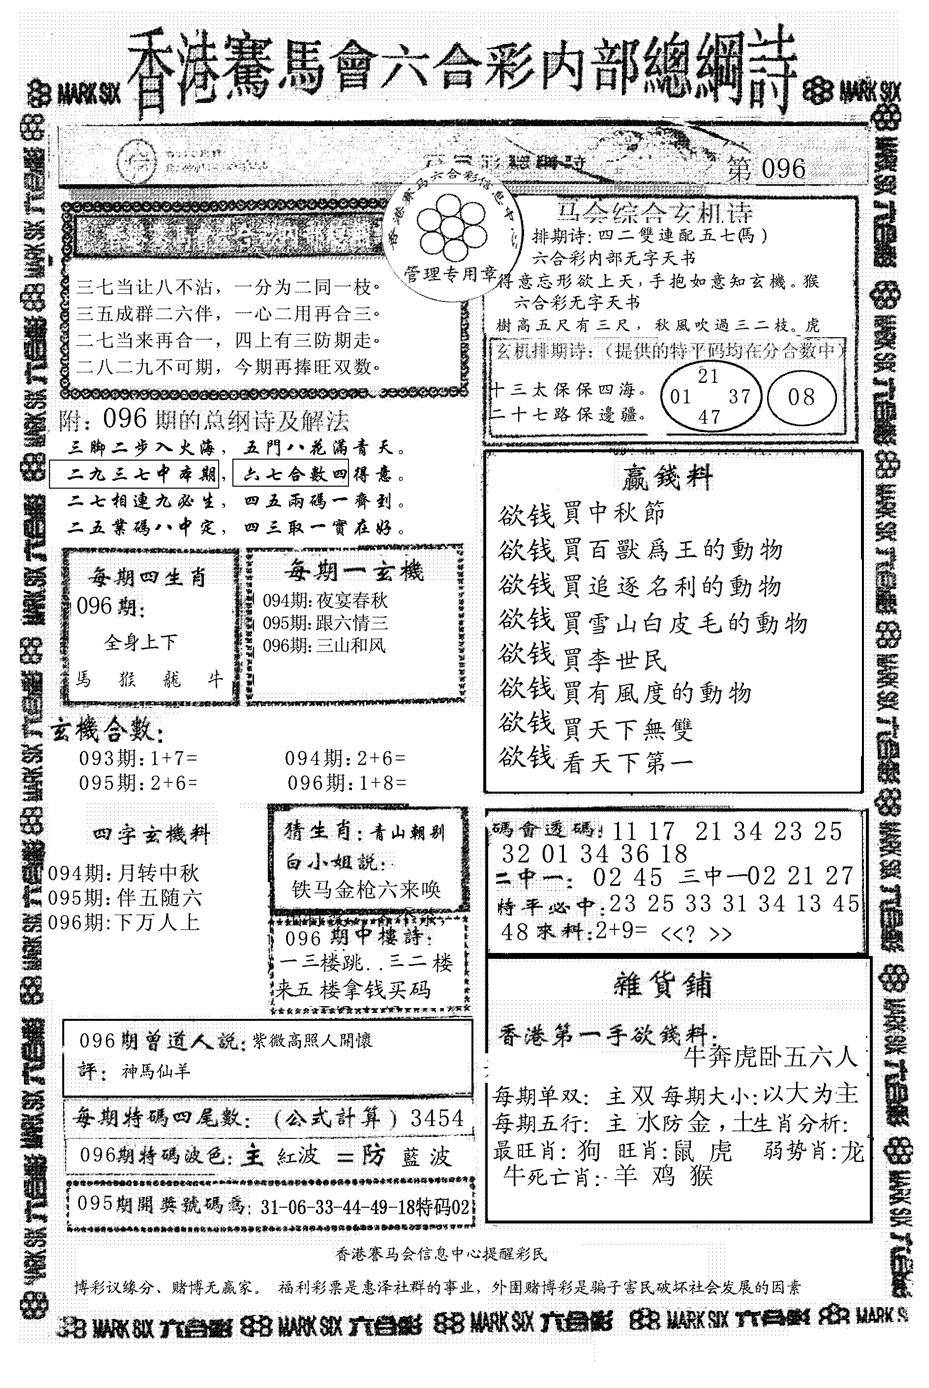 香港賽馬會六合彩内部總綱詩
MARK SIX
MARK SIX
第 096
管理专用章
三七当让八不沾，一分为二同一枝。
三五成群二六伴，一心二用再合三。
二七当来再合一，四上有三防期走。
二八二九不可期，今期再捧旺双数。
附: 096 期的总纲诗及解法
三脚二步入火海，五門八花滿青天。
二九三七中本期，六七合數四得意。
二七相連九必生，四五兩碼一齊到。
二五業碼八中定，四三取一實在好。
每期四生肖
096期:
全身上下
馬 猴 龍 牛
每期一玄機
094期:夜宴春秋
095期:跟六情三
096期:三山和风
玄機合數:
093期:1+7= 094期:2+6=
095期:2+6= 096期:1+8=
四字玄機料
094期:月转中秋
095期:伴五随六
096期:下万人上
猜生肖:青山朝别
白小姐説:
铁马金枪六来唤
096 期中樓詩:
一三楼跳..三二楼
来五楼拿钱买码
096期曾道人説:紫微高照人開懷
評: 神馬仙羊
每期特碼四尾數: (公式計算) 3454
096期特碼波色:主 紅波 =防 藍波
095期開獎號碼爲:31-06-33-44-49-18特码02
马会综合玄机诗
排期诗:四二雙連配五七(馬)
六合彩内部无字天书
得意忘形欲上天,手抱如意知玄機。猴
六合彩无字天书
樹高五尺有三尺，秋風吹過三二枝。虎
玄机排期诗:(提供的特平码均在分合数中)
十三太保保四海。
二十七路保邊疆。
21
01 37
47
08
赢錢料
欲钱買中秋節
欲钱買百獸爲王的動物
欲钱買追逐名利的動物
欲钱買雪山白皮毛的動物
欲钱買李世民
欲钱買有風度的動物
欲钱買天下無雙
欲钱看天下第一
碼會透碼:11 17 21 34 23 25
32 01 34 36 18
二中一: 02 45 三中一02 21 27
特平必中:23 25 33 31 34 13 45
48 來料:2+9= <<? >>
雜貨鋪
香港第一手欲錢料:
牛奔虎卧五六人
每期单双: 主双 每期大小:以大为主
每期五行: 主 水防金,土生肖分析:
最旺肖:狗 旺肖:鼠 虎 弱势肖:龙
牛死亡肖:羊 鸡 猴
香港赛马会信息中心提醒彩民
博彩议缘分、赌博无赢家。 福利彩票是惠泽社群的事业，外围赌博彩是骗子害民破坏社会发展的因素
MARK SIX 六合彩 MARK SIX 六合彩 MARK SIX 六合彩 MARK SIX 六合彩 MARK SIX